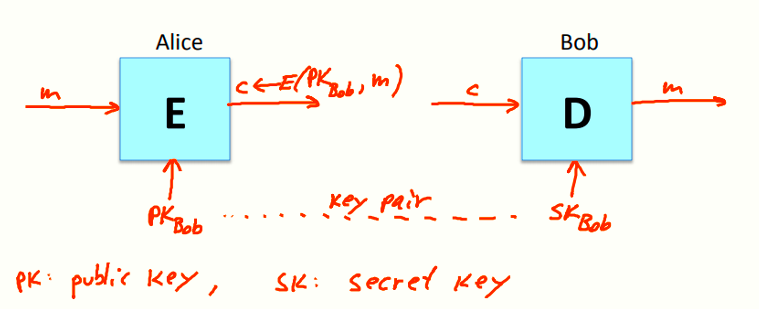 Alice Bob
m E c ← E(PK_Bob, m) c D m
key pair
PK_Bob SK_Bob
PK: public key, SK: secret key